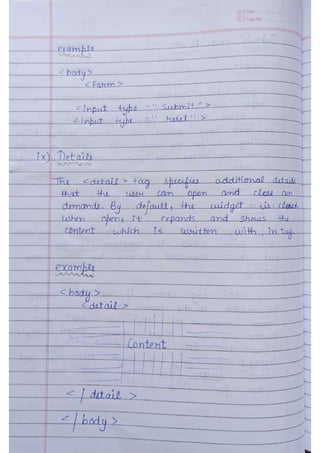 example
<body>
<Form>
<input type = "Submit">
<input type = "reset">
ix) Details
The <detail> tag specifies additional details
that the user can open and close on
demands. By default, the widget is close
when open, it expands and shows the
content which is written with, in tag.
example
<body>
<detail>
Content
</detail>
</body>